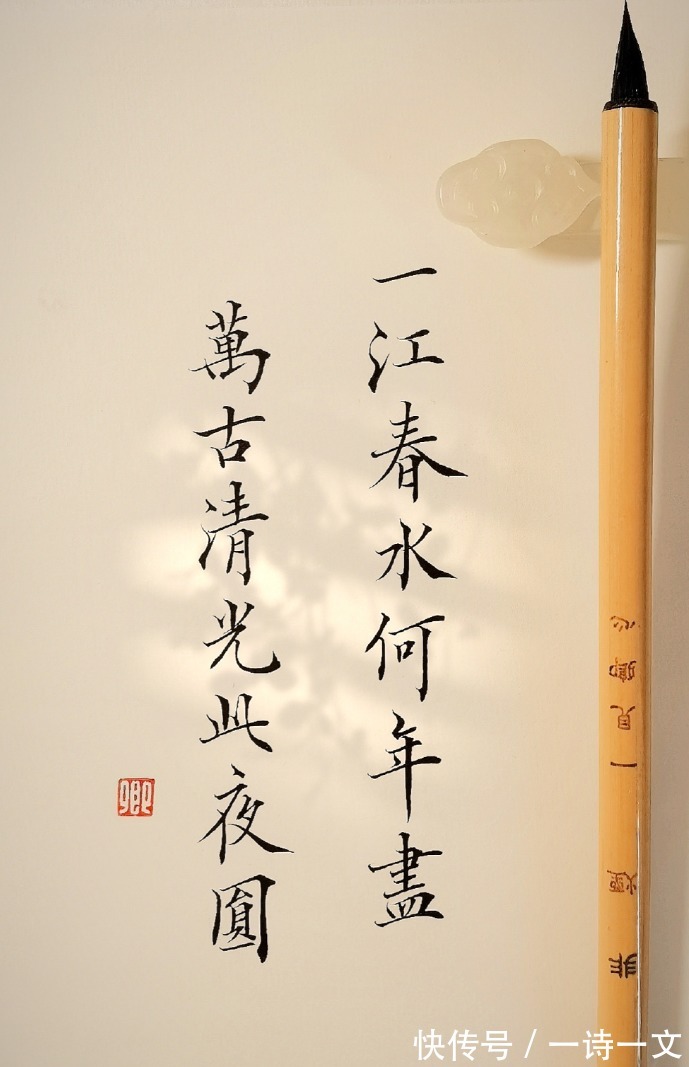 一江春水何年盡
萬古清光此夜圓
卿
一見卿心
快传号 / 一诗一文